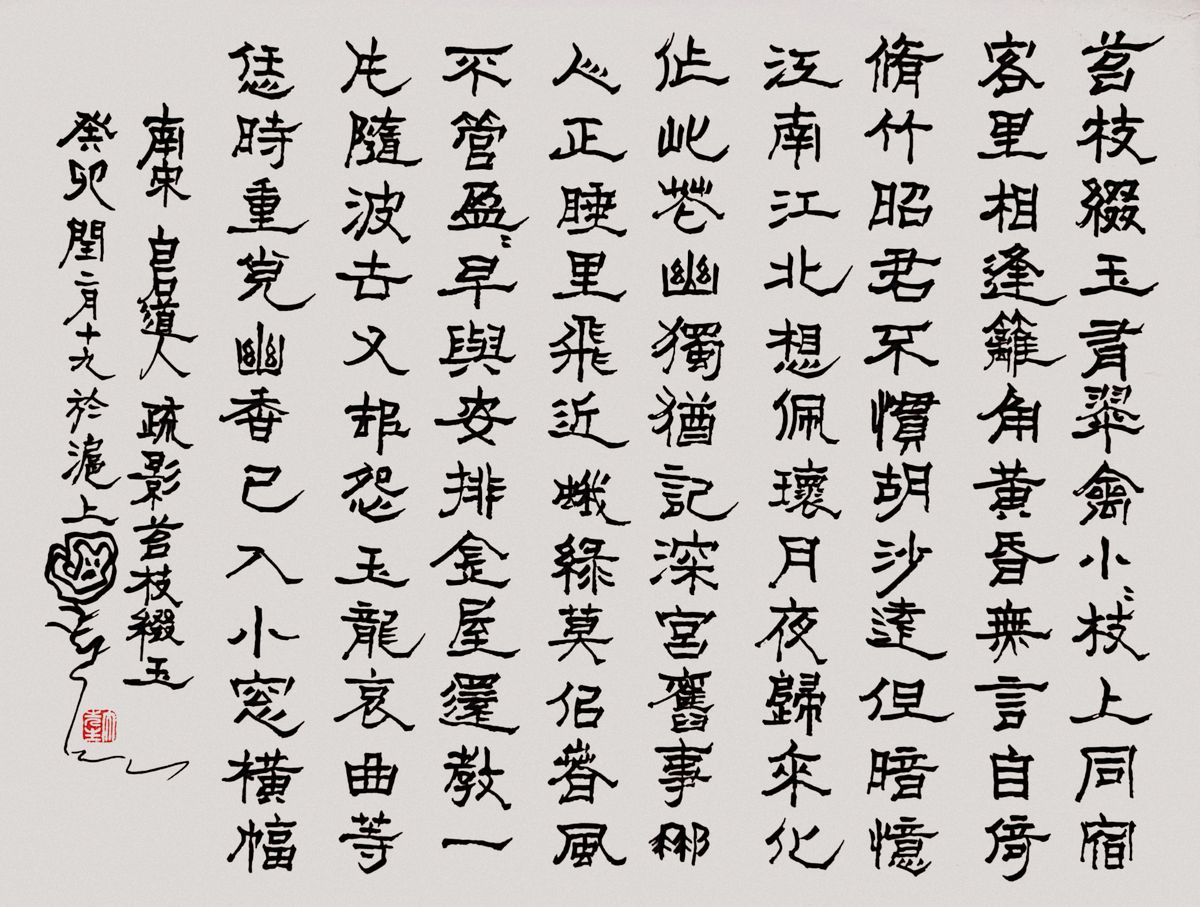 苔枝綴玉有翠禽小〻枝上同宿
客里相逢籬角黄昏無言自倚
脩竹昭君不慣胡沙遠但暗憶
江南江北想佩環月夜歸來化
作此花幽獨猶記深宮舊事那
人正睡里飛近蛾綠莫佀春風
不管盈〻早與安排金屋還教一
片隨波去又却怨玉龍哀曲等
恁時重覓幽香已入小窓横幅
南宋 白石道人 疏影苔枝綴玉
癸卯閏二月十九於滬上